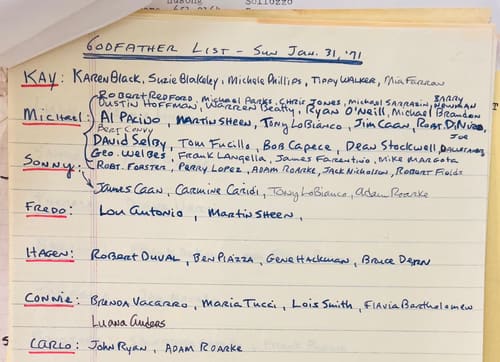 Sollozzo
GODFATHER LIST - SUN JAN. 31, '71
KAY: KAREN BLACK, Suzie Blakeley, Michele Phillips, TIPPY WALKER, Mia Farrow
ROBERT REDFORD, Michael Parks, Chris Jones, Michael Sarrazin, BARRY NEWMAN
DUSTIN HOFFMAN, WARREN Beatty, RYAN O'NEILL, Michael Brandon
Michael: Al PACINO, MARTIN SHEEN, TONY LoBIANCO, JIM CAAN, ROBT. DiNiro,
Bert Convy
DAVID SELBY, TOM Fucillo, BOB CAPECE, DEAN Stockwell, JOE
GEO. WELBES, FRANK LANGELLA, JAMES FARENTINO, MIKE MARGOTA
SONNY: ROBT. FORSTER, PERRY LOPEZ, ADAM ROARKE, JACK Nicholson, ROBERT Fields
JAMES CAAN, CARMINE CARIDI, TONY LOBIANCO, ADAM ROARKE
FREDO: LOU ANTONIO, MARTIN SHEEN,
HAGEN: ROBERT DUVAL, BEN PIAZZA, GENE HACKMAN, BRUCE DERN
CONNIE: BRENDA VACARRO, MARIA TUCCI, LOIS SMITH, FLAVIA BARTHOLOMEW
LUANA ANDERS
CARLO: JOHN RYAN, ADAM ROARKE